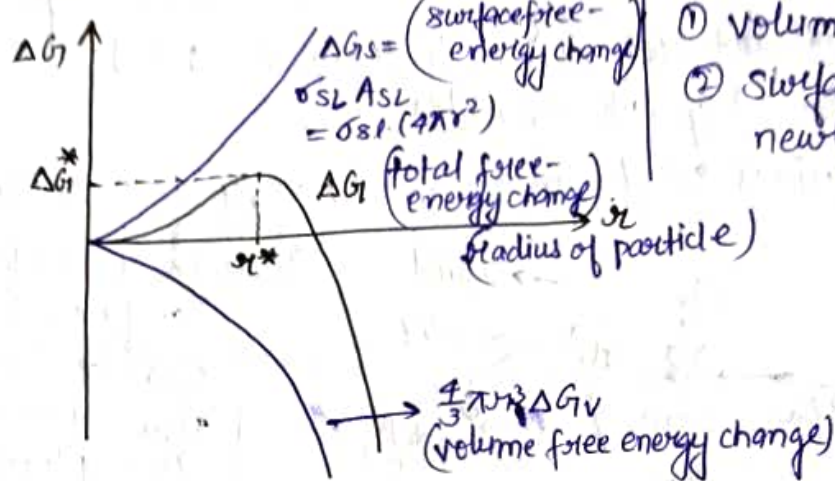 ΔG
ΔGs = (surface free-
energy change)
σSL ASL
= σsl.(4πr²)
① volum
② surfa
new
ΔG*
ΔG (total free-
energy change)
r
(radius of particle)
r*
4/3 πr³ ΔGv
(volume free energy change)